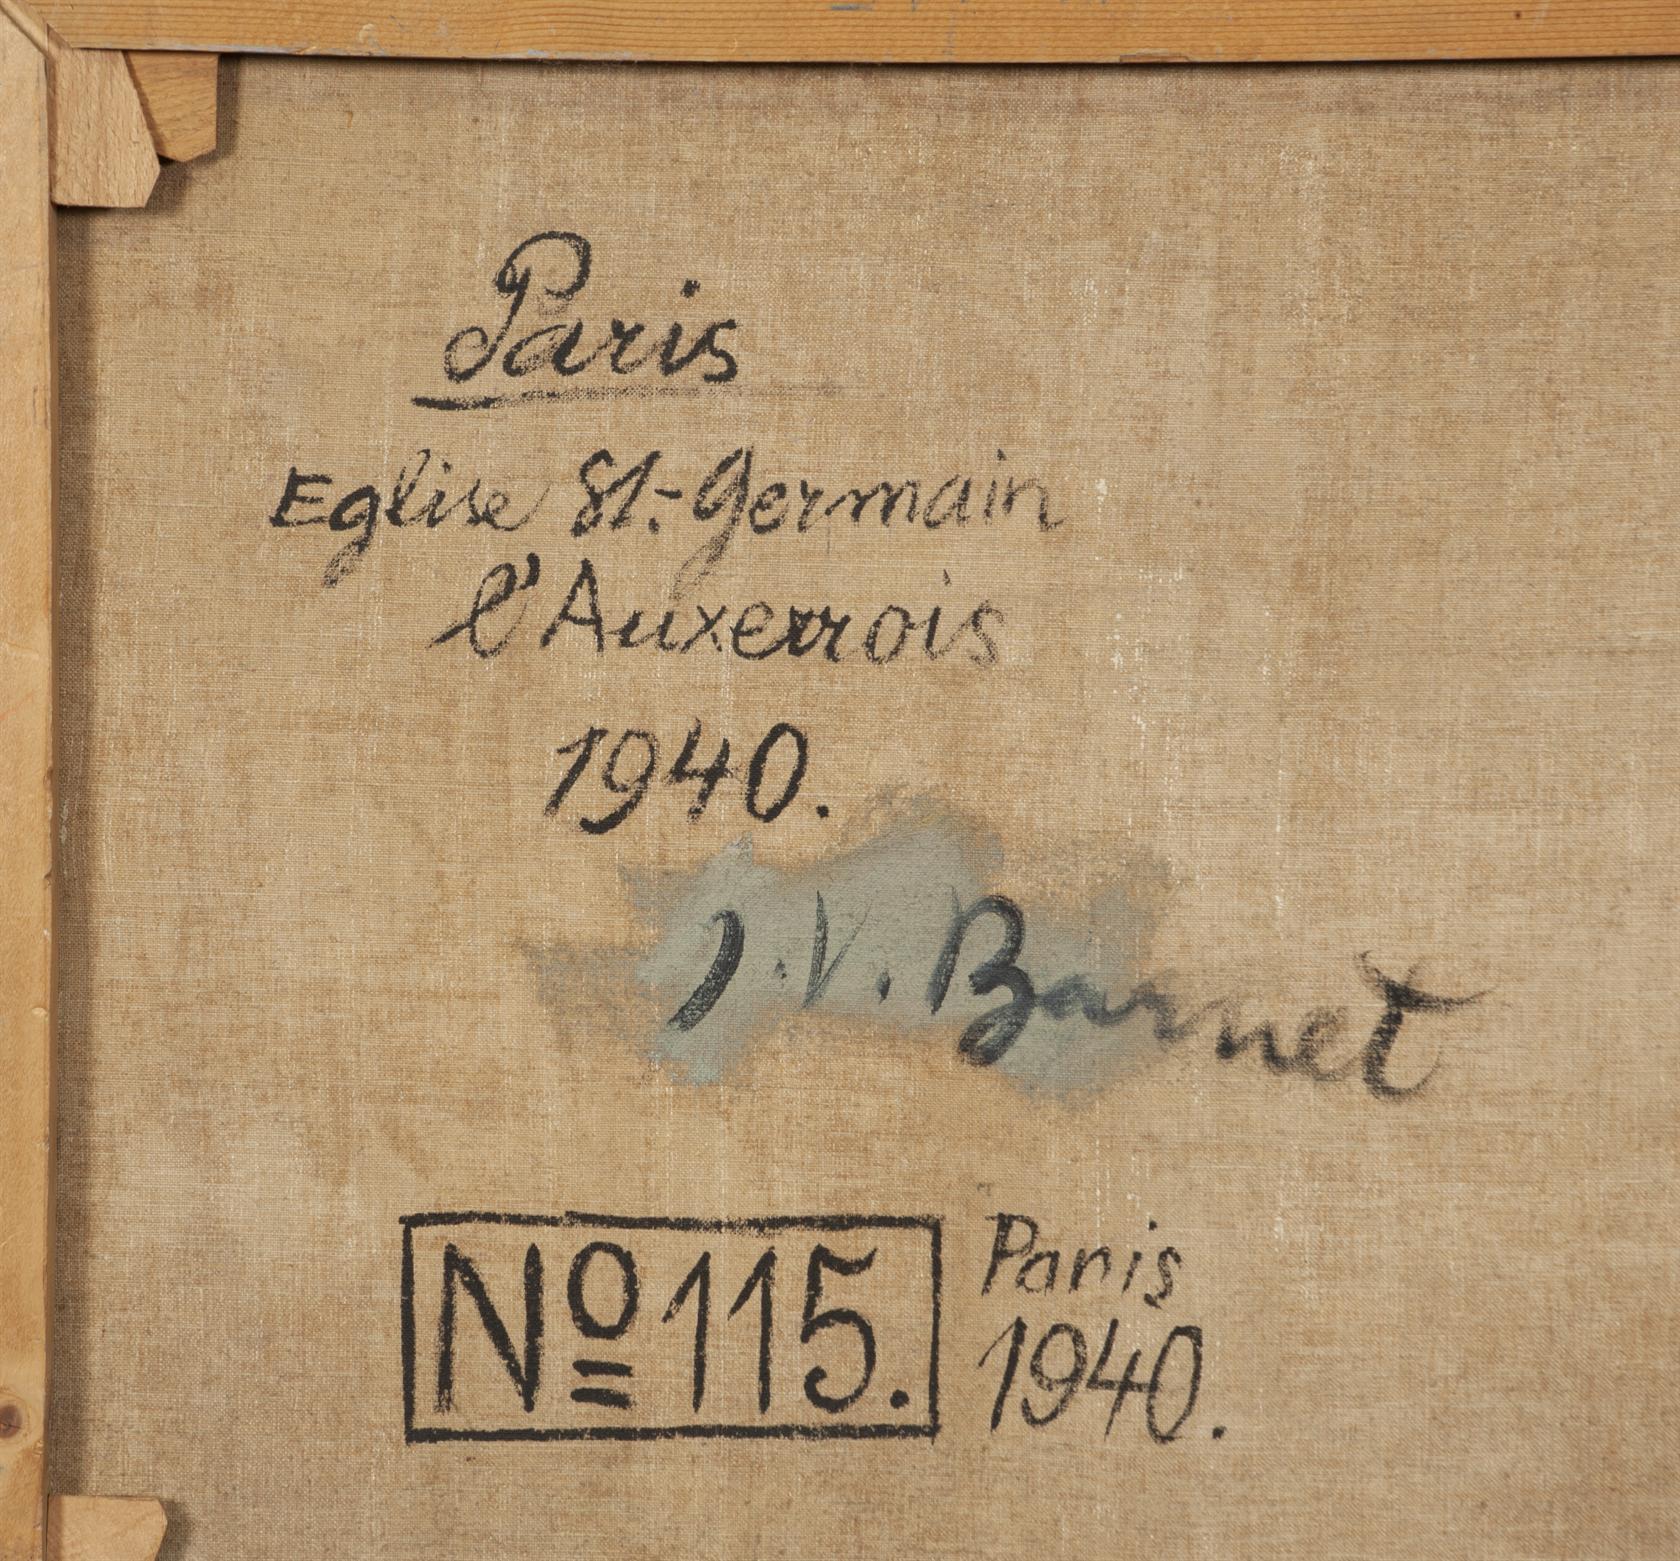 Paris
Eglise St.-Germain
l'Auxerrois
1940.
J.V. Barnet
Nº 115.
Paris
1940.